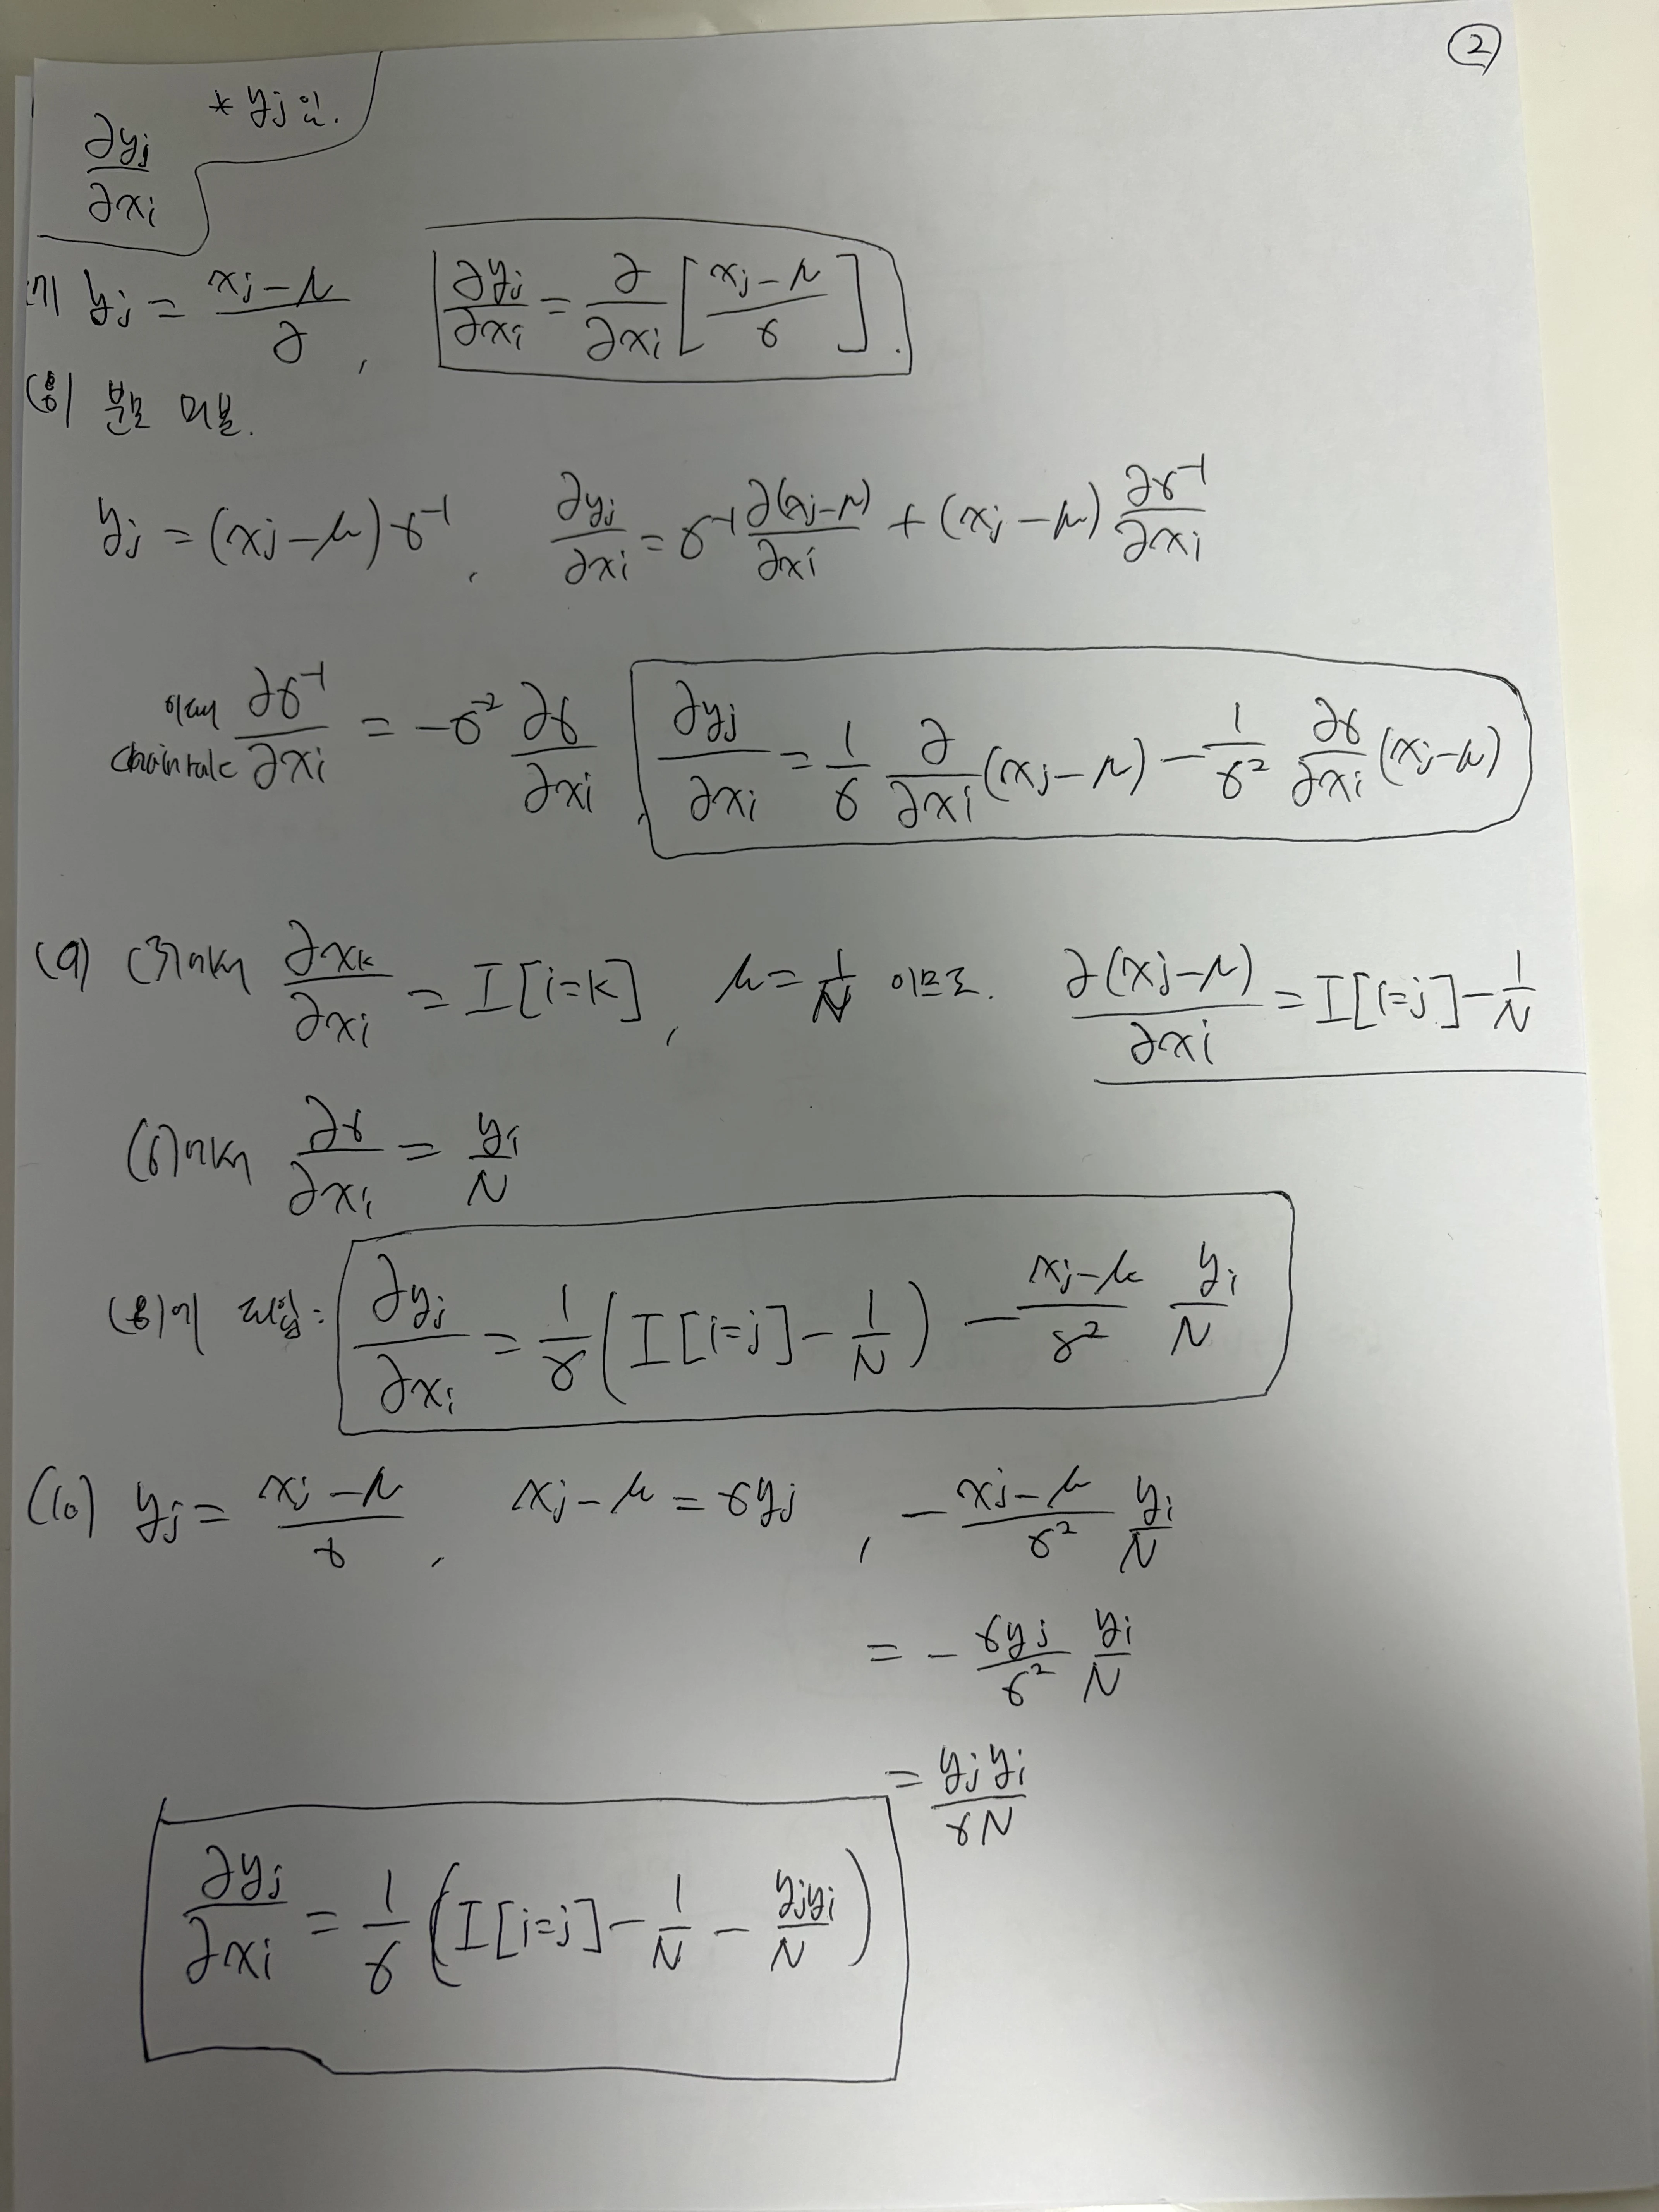 ②
* yj 인.
∂yj/∂xi
(7) yj = (xj-μ)/∂ , ∂yj/∂xi = ∂/∂xi [(xj-μ)/σ].
(8) 분모 미분.
yj = (xj-μ)σ⁻¹ , ∂yj/∂xi = σ⁻¹ ∂(xj-μ)/∂xi + (xj-μ) ∂σ⁻¹/∂xi
chain rule ∂σ⁻¹/∂xi = -σ⁻² ∂σ/∂xi , ∂yj/∂xi = 1/σ ∂/∂xi (xj-μ) - 1/σ² ∂σ/∂xi (xj-μ)
(9) (3)에서 ∂xk/∂xi = I[i=k] , μ = 1/N 이므로. ∂(xj-μ)/∂xi = I[i=j] - 1/N
(6)에서 ∂σ/∂xi = yi/N
(8)에 대입: ∂yj/∂xi = 1/σ (I[i=j] - 1/N) - (xj-μ)/σ² yi/N
(10) yj = (xj-μ)/σ , xj-μ = σyj , -(xj-μ)/σ² yi/N
= - σyj/σ² yi/N
= yjyi/σN
∂yj/∂xi = 1/σ (I[i=j] - 1/N - yjyi/N)